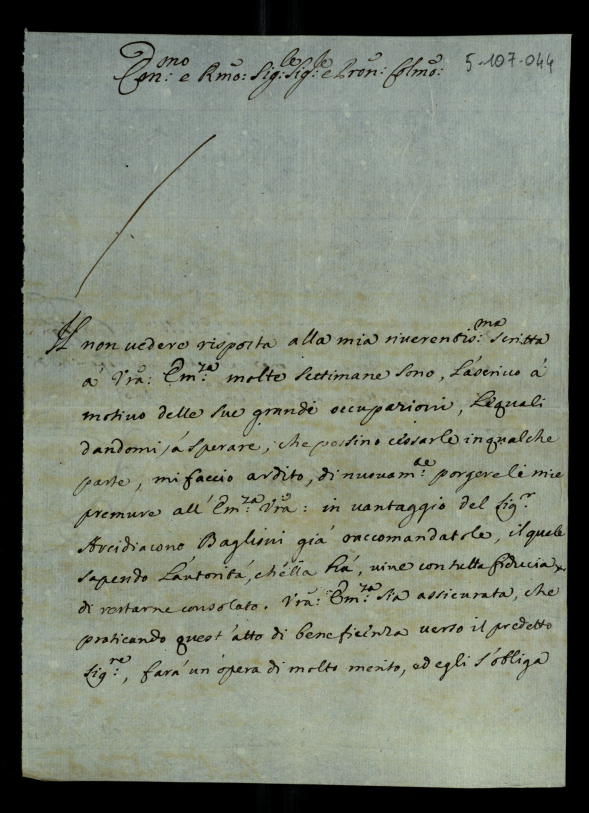 Em:mo e Rmo: Sig:le Sig:le e Pron: Colmo:
5-107-044
Il non vedere risposta alla mia riverentis:ma scritta
à Vrã: Em:za molte settimane sono, L'ascrivo à
motivo delle sue grandi occupazioni, Lequali
dandomi, à sperare, che possino cessarle in qualche
parte, mi faccio ardito, di nuovam:te porgere le mie
premure all' Em:za Vrã: in vantaggio del Sig:r
Arcidiacono Baglioni già raccomandatole, il quale
sapendo L'autorità, ch'ella hà, vive con tutta fiducia
di restarne consolato. Vrã: Em:za sia assicurata, che
praticando quest'atto di beneficienza verso il predetto
Sig:re, farà un'opera di molto merito, ed egli s'obliga